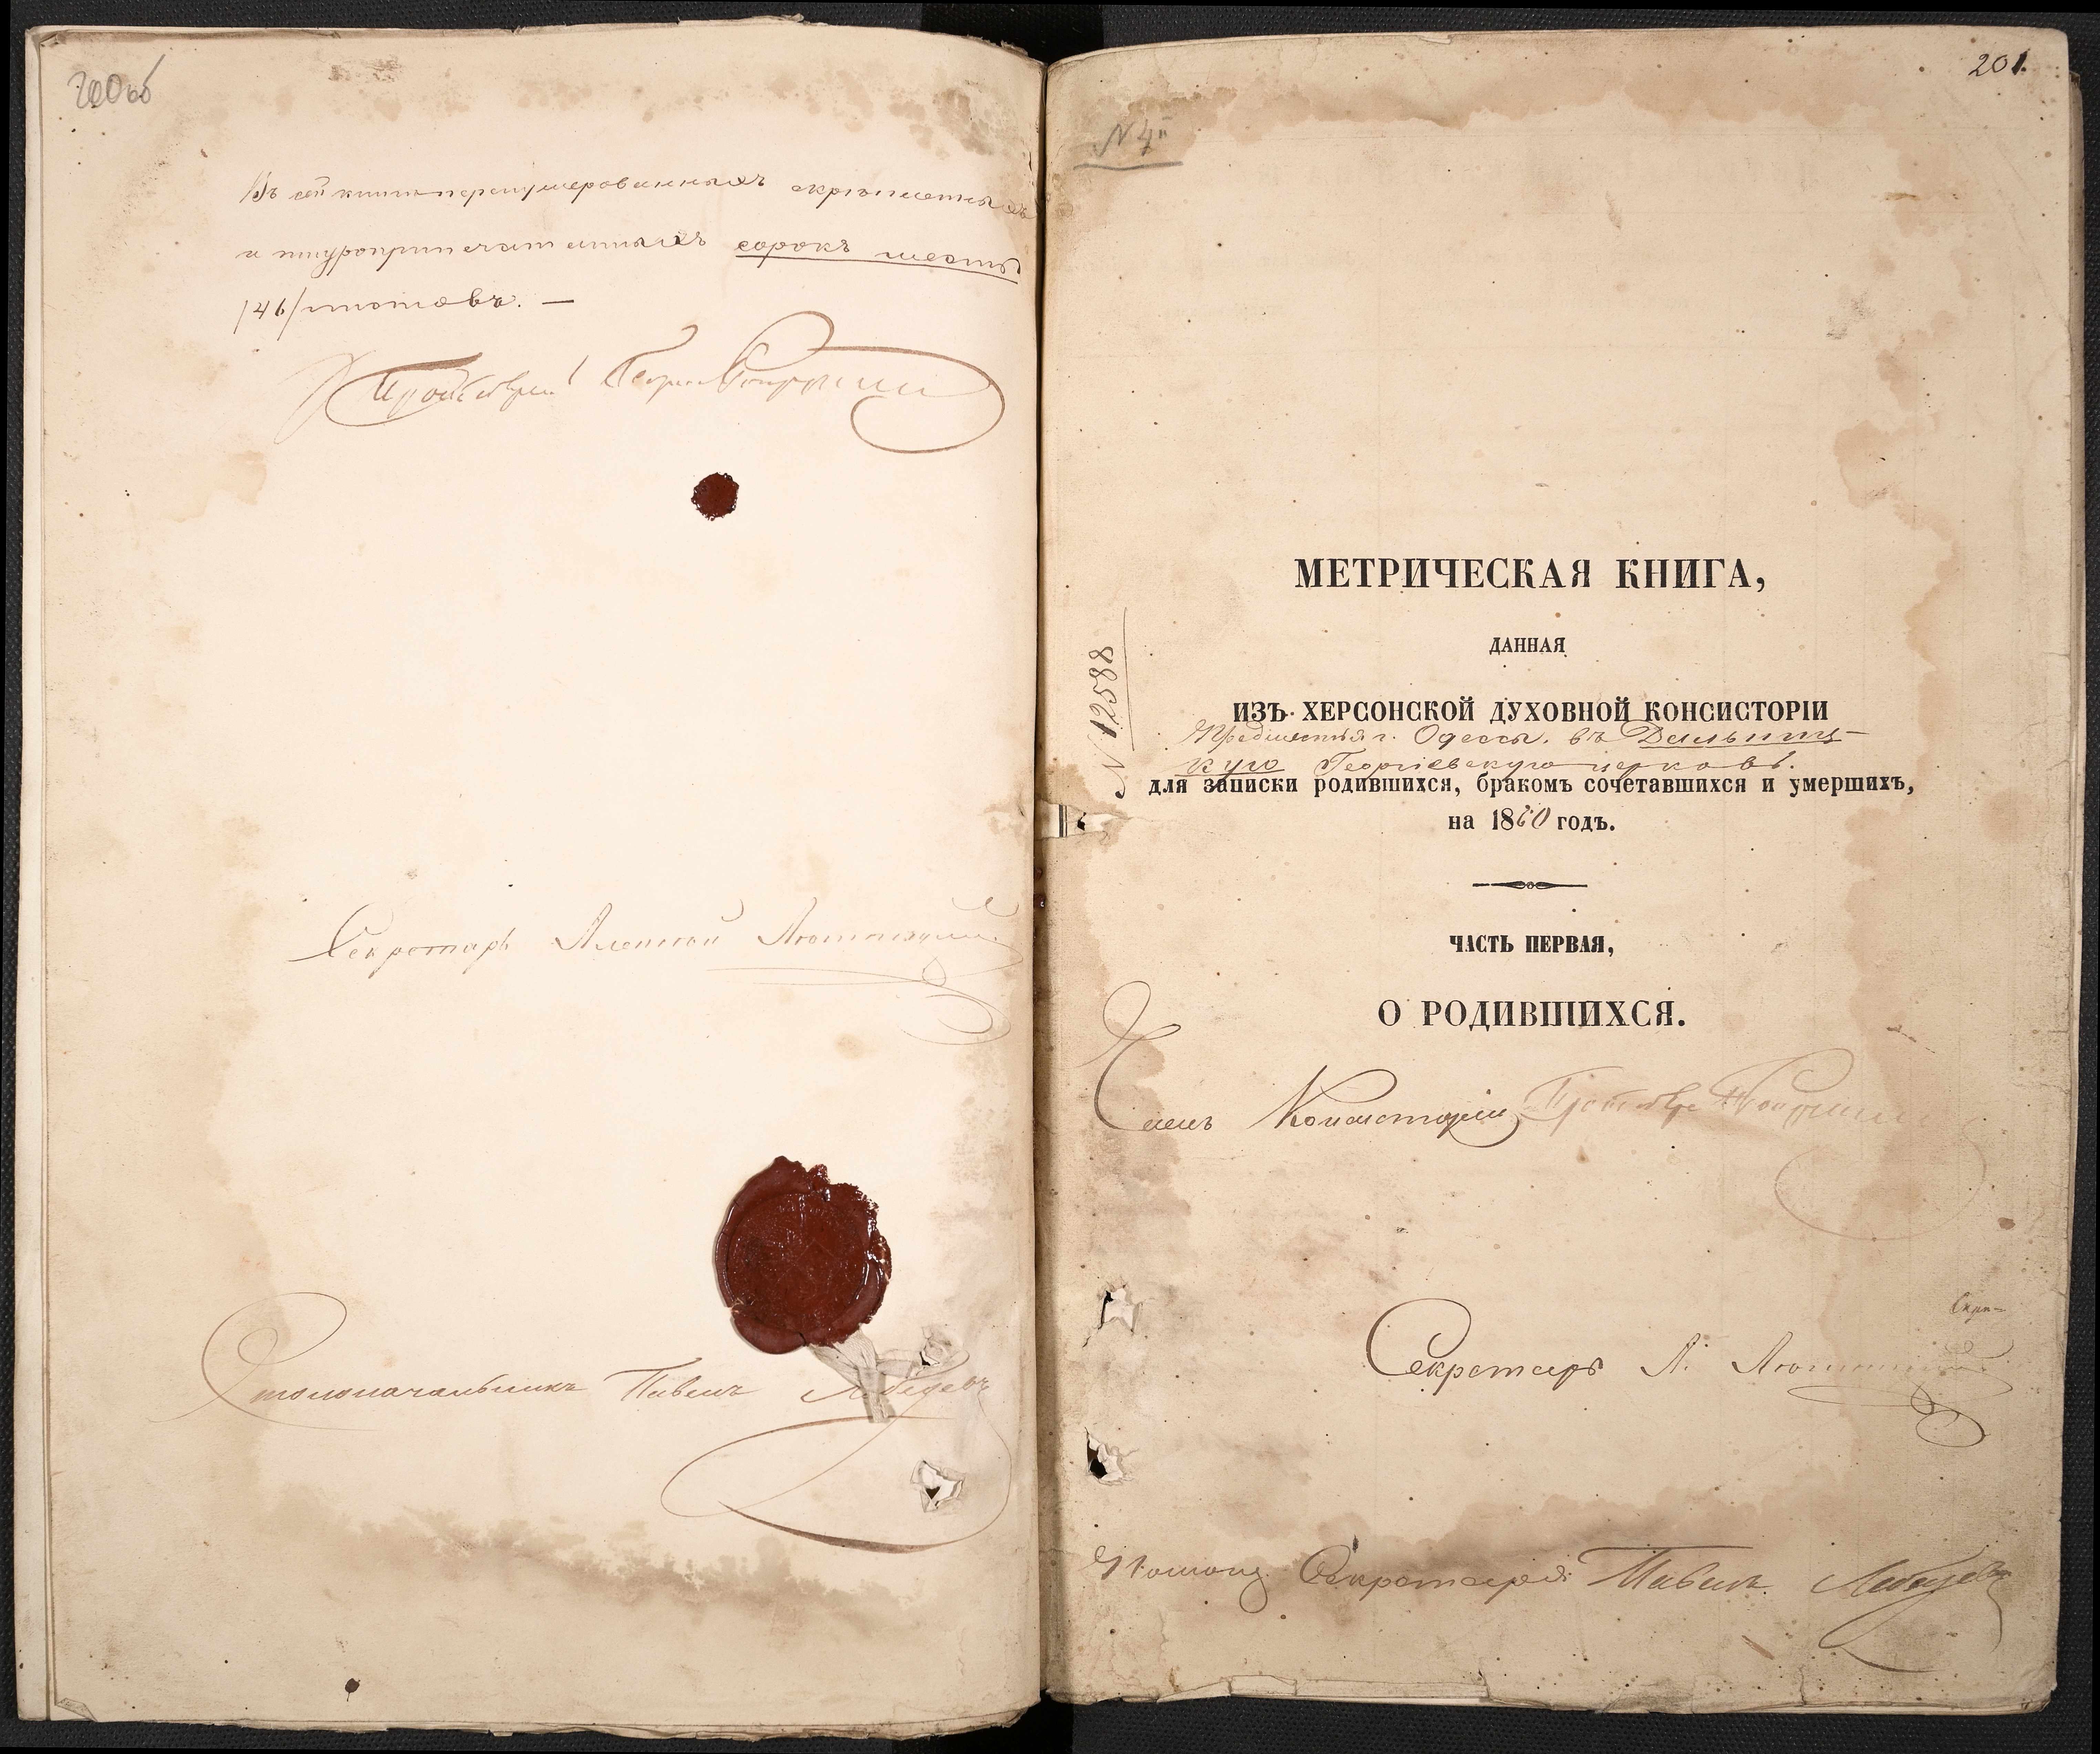 200об
Въ сей книге перенумерованныхъ скрепленныхъ
и шнуроприпечатанныхъ сорокъ шесть
/46/ листовъ. —
Протоіерей
Секретарь Алексей
Столоначальникъ Павелъ Лебедевъ
201.
N 4
N 12588
МЕТРИЧЕСКАЯ КНИГА,
ДАННАЯ
ИЗЪ ХЕРСОНСКОЙ ДУХОВНОЙ КОНСИСТОРІИ
Предместья г. Одессы. въ Дальниц-
кую Георгіевскую церковь.
для записки родившихся, бракомъ сочетавшихся и умершихъ,
на 1860 годъ.
ЧАСТЬ ПЕРВАЯ,
О РОДИВШИХСЯ.
Членъ Консисторіи
Скрп-
Секретарь А.
Помощ. Секретаря Павелъ Лебедевъ